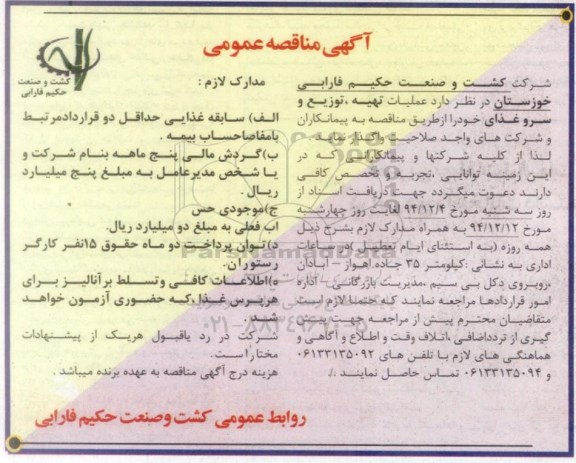 آگهی مناقصه عمومی
کشت و صنعت
حکیم فارابی
شرکت کشت و صنعت حکیم فارابی
خوزستان در نظر دارد عملیات تهیه ،توزیع و
سرو غذای خودرا ازطریق مناقصه به پیمانکاران
و شرکت های واجد صلاحیت واگذار نماید .
لذا از کلیه شرکتها و پیمانکارانی که در
این زمینه توانایی ،تجربه و تخصص کافی
دارند دعوت میگردد جهت دریافت اسناد از
روز سه شنبه مورخ ۹۴/۱۲/۴ لغایت روز چهارشنبه
مورخ ۹۴/۱۲/۱۲ به همراه مدارک لازم بشرح ذیل
همه روزه (به استثنای ایام تعطیل )در ساعات
اداری به نشانی :کیلومتر ۳۵ جاده اهواز – آبادان
،روبروی دکل بی سیم ،مدیریت بازرگانی – اداره
امور قراردادها مراجعه نمایند که حتما لازم است
متقاضیان محترم پیش از مراجعه جهت
گیری از تردداضافی ،اتلاف وقت و اطلاع و آگاهی و
هماهنگی های لازم با تلفن های ۰۶۱۳۳۱۳۵۰۹۲
و ۰۶۱۳۳۱۳۵۰۹۴ تماس حاصل نمایند ./.
مدارک لازم :
الف) سابقه غذایی حداقل دو قراردادمرتبط
بامفاصاحساب بیمه .
ب)گردش مالی پنج ماهه بنام شرکت و
یا شخص مدیرعامل به مبلغ پنج میلیارد
ریال .
ج)موجودی حس
اب فعلی به مبلغ دو میلیارد ریال.
د)توان پرداخت دو ماه حقوق ۱۵نفر کارگر
رستوران.
ه)اطلاعات کافی وتسلط برآنالیز برای
هرپرس غذا،که حضوری آزمون خواهد
شد .
شرکت در رد یاقبول هریک از پیشنهادات
مختاراست.
هزینه درج آگهی مناقصه به عهده برنده میباشد .
روابط عمومی کشت وصنعت حکیم فارابی
ParsNamadData
۰۲۱-۸۸۳۴۹۶۷۰-۵